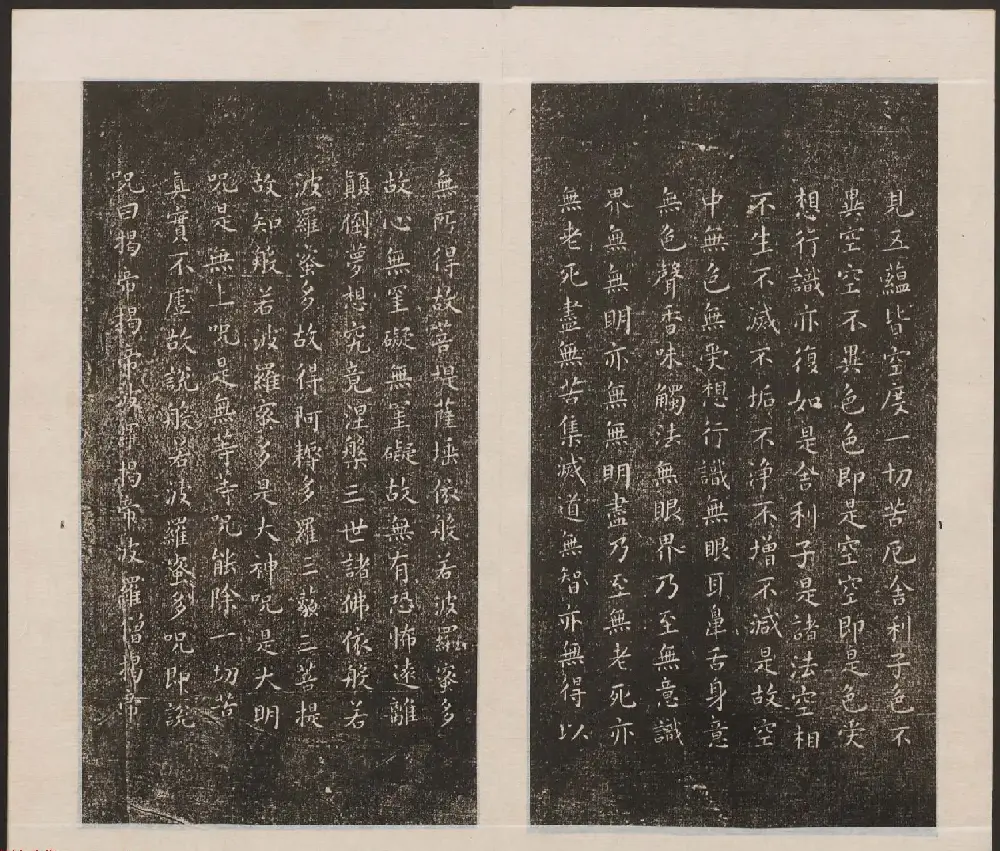 見五蘊皆空度一切苦厄舍利子色不
異空空不異色色即是空空即是色受
想行識亦復如是舍利子是諸法空相
不生不滅不垢不淨不增不減是故空
中無色無受想行識無眼耳鼻舌身意
無色聲香味觸法無眼界乃至無意識
界無無明亦無無明盡乃至無老死亦
無老死盡無苦集滅道無智亦無得以
無所得故菩提薩埵依般若波羅蜜多
故心無罣礙無罣礙故無有恐怖遠離
顛倒夢想究竟涅槃三世諸佛依般若
波羅蜜多故得阿耨多羅三藐三菩提
故知般若波羅蜜多是大神咒是大明
咒是無上咒是無等等咒能除一切苦
真實不虛故說般若波羅蜜多咒即說
咒曰揭帝揭帝般羅揭帝波羅僧揭帝